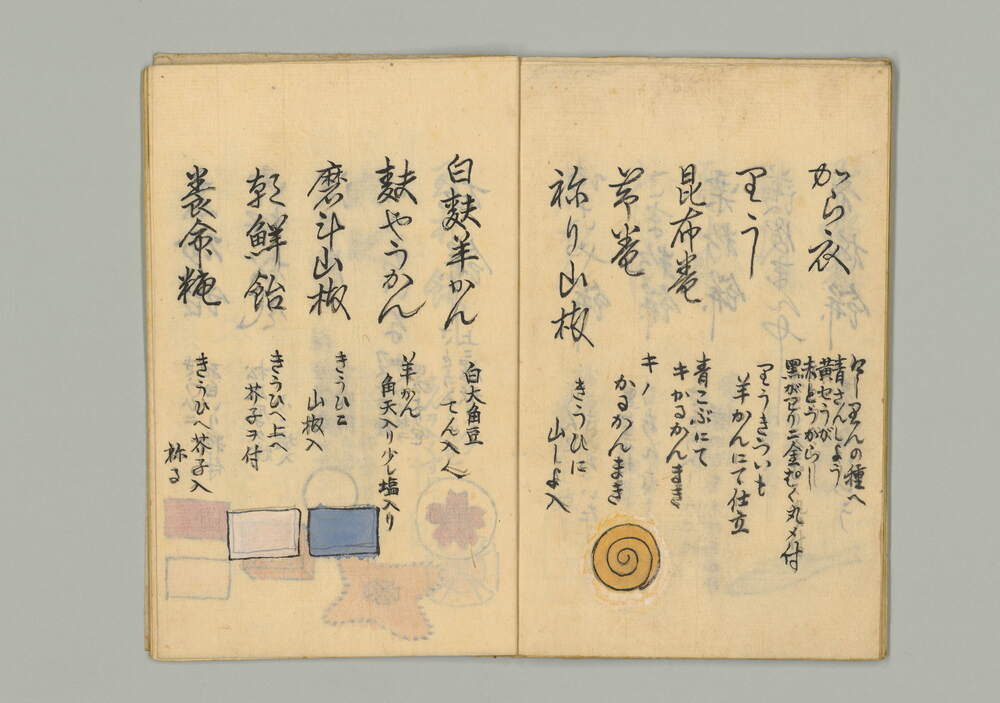 から衣
らくりんの種へ
青さんしよう
黄せうが
赤とうがらし
黒がわり二金むく丸メ付
りうきういも
羊かんにて仕立
昆布巻
青こぶにて
キかるかんまき
巻
キノ
かるかんまき
祢り山椒
きうひに
山しよ入
白麩羊かん
白大角豆
てん入
麩やうかん
羊かん
角天入り少し塩入り
磨斗山椒
きうひニ
山椒入
朝鮮飴
きうひへ上へ
芥子ヲ付
養命糖
きうひへ芥子入
祢る